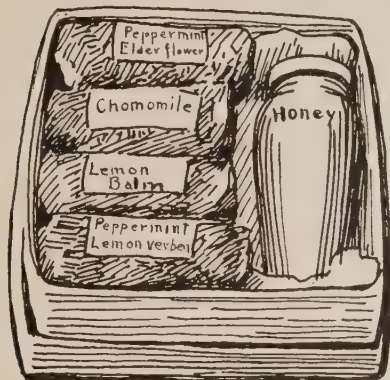 Peppermint
Elder flower
Chomomile
Lemon
Balm
Peppermint
Lemon verben
Honey